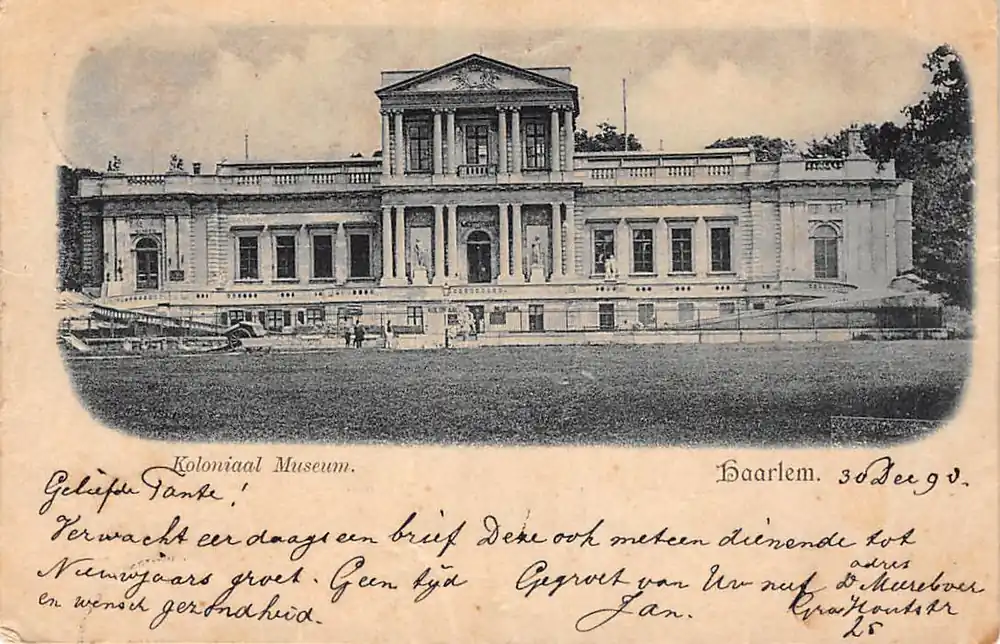 Koloniaal Museum.
Haarlem. 30 Dec 98.
Geliefde Tante!
Verwacht eerdaags een brief Deze ook meteen dienende tot
Nieuwjaars groet. Geen tijd
en wensch gezondheid.
Gegroet van Uw neef
Jan.
adres
D. Mureboer
Gr. Houtstr
25